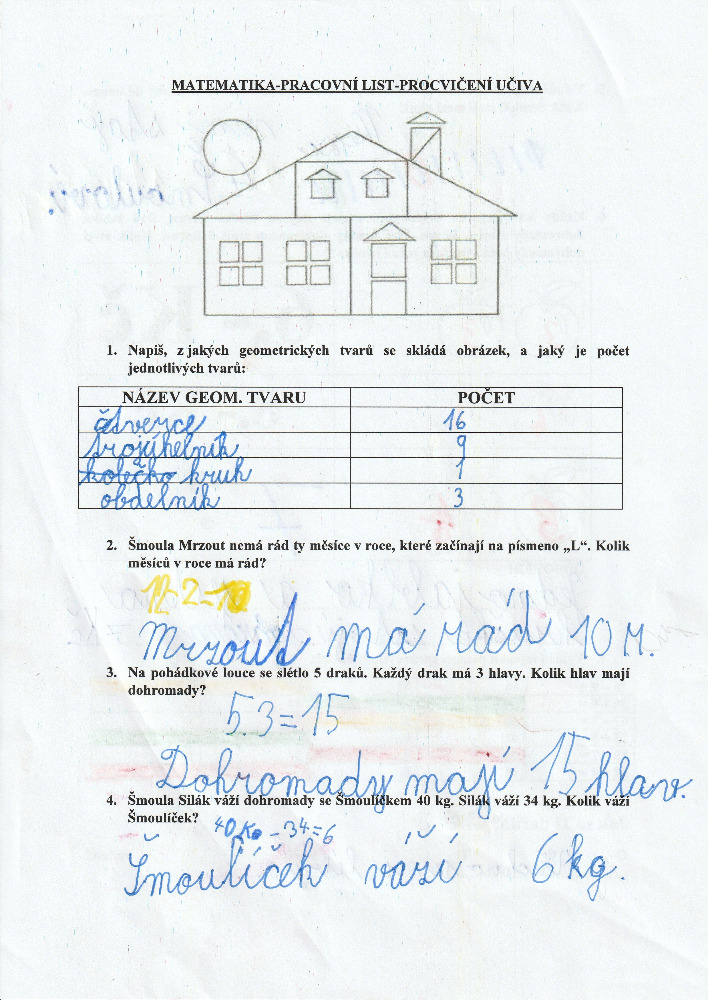 MATEMATIKA-PRACOVNÍ LIST-PROCVIČENÍ UČIVA
1. Napiš, z jakých geometrických tvarů se skládá obrázek, a jaký je počet
jednotlivých tvarů:
NÁZEV GEOM. TVARU POČET
čtverce 16
trojúhelník 9
kolečko kruh 1
obdelník 3
2. Šmoula Mrzout nemá rád ty měsíce v roce, které začínají na písmeno „L“. Kolik
měsíců v roce má rád?
12-2=10
Mrzout má rád 10 M.
3. Na pohádkové louce se slétlo 5 draků. Každý drak má 3 hlavy. Kolik hlav mají
dohromady?
5.3=15
Dohromady mají 15 hlav.
4. Šmoula Silák váží dohromady se Šmoulíčkem 40 kg. Silák váží 34 kg. Kolik váží
Šmoulíček?
40 - 34=6
Šmoulíček váží 6 kg.